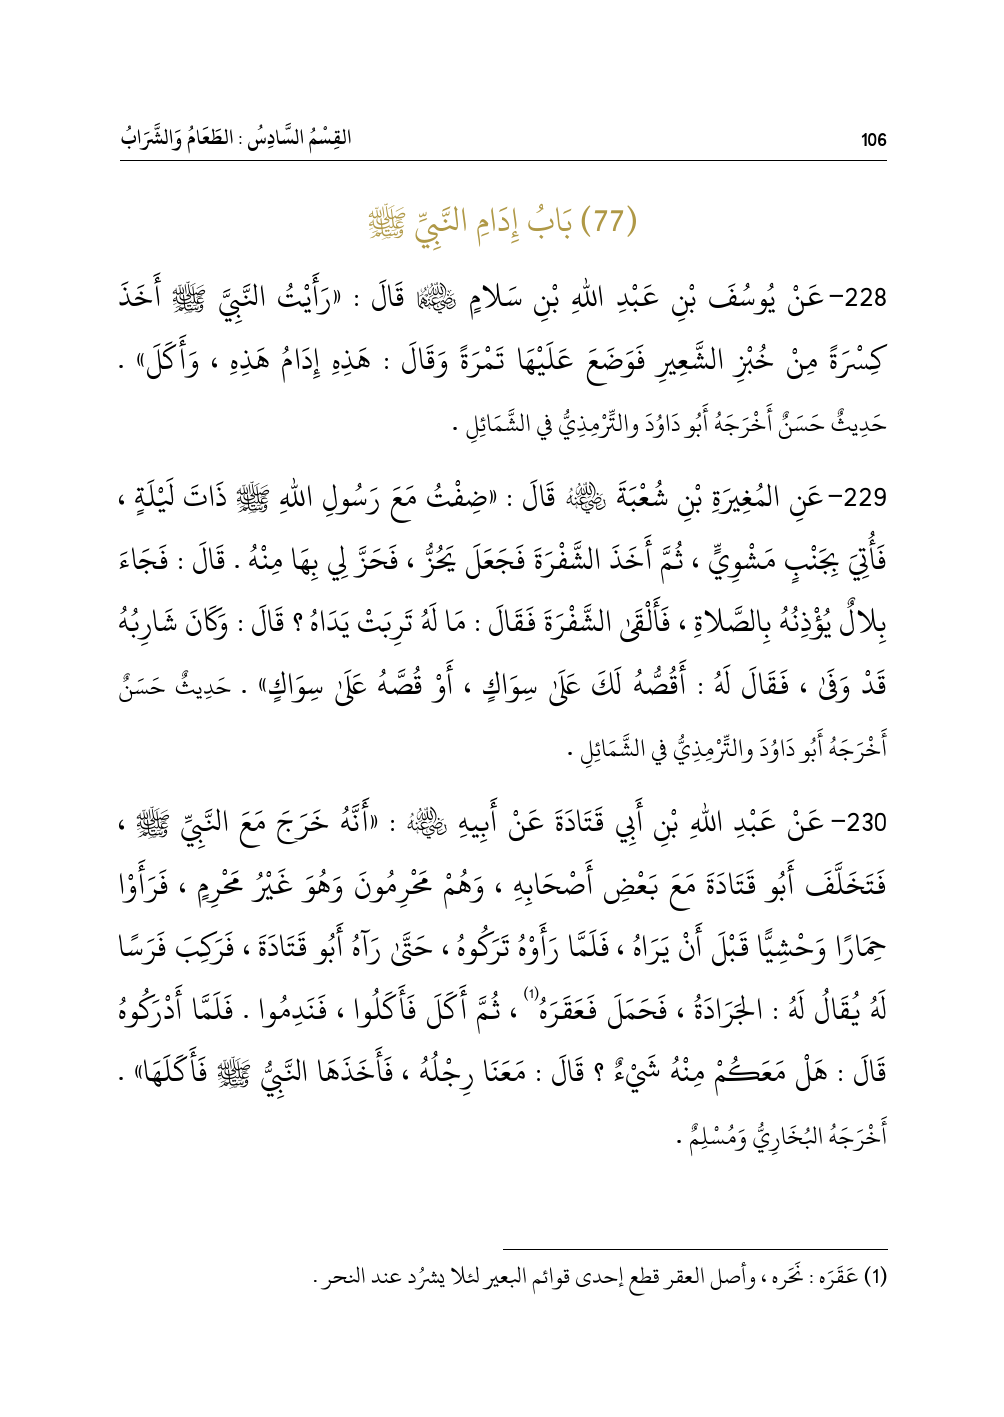 106
القِسْمُ السَّادِسُ : الطَعَامُ وَالشَّرَابُ
(77) بَابُ إِدَامِ النَّبِيِّ ﷺ
228– عَنْ يُوسُفَ بْنِ عَبْدِ اللهِ بْنِ سَلامٍ رضي الله عنهما قَالَ : «رَأَيْتُ النَّبِيَّ ﷺ أَخَذَ
كِسْرَةً مِنْ خُبْزِ الشَّعِيرِ فَوَضَعَ عَلَيْهَا تَمْرَةً وَقَالَ : هَذِهِ إِدَامُ هَذِهِ ، وَأَكَلَ» .
حَدِيثٌ حَسَنٌ أَخْرَجَهُ أَبُو دَاوُدَ والتِّرْمِذِيُّ في الشَّمَائِلِ .
229– عَنِ المُغِيرَةِ بْنِ شُعْبَةَ رضي الله عنه قَالَ : «ضِفْتُ مَعَ رَسُولِ اللهِ ﷺ ذَاتَ لَيْلَةٍ ،
فَأُتِيَ بِجَنْبٍ مَشْوِيٍّ ، ثُمَّ أَخَذَ الشَّفْرَةَ فَجَعَلَ يَحُزُّ ، فَحَزَّ لِي بِهَا مِنْهُ . قَالَ : فَجَاءَ
بِلالٌ يُؤْذِنُهُ بِالصَّلاةِ ، فَأَلْقَىٰ الشَّفْرَةَ فَقَالَ : مَا لَهُ تَرِبَتْ يَدَاهُ ؟ قَالَ : وَكَانَ شَارِبُهُ
قَدْ وَفَىٰ ، فَقَالَ لَهُ : أَقُصُّهُ لَكَ عَلَىٰ سِوَاكٍ ، أَوْ قُصَّهُ عَلَىٰ سِوَاكٍ» . حَدِيثٌ حَسَنٌ
أَخْرَجَهُ أَبُو دَاوُدَ والتِّرْمِذِيُّ في الشَّمَائِلِ .
230– عَنْ عَبْدِ اللهِ بْنِ أَبِي قَتَادَةَ عَنْ أَبِيهِ رضي الله عنه : «أَنَّهُ خَرَجَ مَعَ النَّبِيِّ ﷺ ،
فَتَخَلَّفَ أَبُو قَتَادَةَ مَعَ بَعْضِ أَصْحَابِهِ ، وَهُمْ مُحْرِمُونَ وَهُوَ غَيْرُ مُحْرِمٍ ، فَرَأَوْا
حِمَارًا وَحْشِيًّا قَبْلَ أَنْ يَرَاهُ ، فَلَمَّا رَأَوْهُ تَرَكُوهُ ، حَتَّىٰ رَآهُ أَبُو قَتَادَةَ ، فَرَكِبَ فَرَسًا
لَهُ يُقَالُ لَهُ : الجَرَادَةُ ، فَحَمَلَ فَعَقَرَهُ(1) ، ثُمَّ أَكَلَ فَأَكَلُوا ، فَنَدِمُوا . فَلَمَّا أَدْرَكُوهُ
قَالَ : هَلْ مَعَكُمْ مِنْهُ شَيْءٌ ؟ قَالَ : مَعَنَا رِجْلُهُ ، فَأَخَذَهَا النَّبِيُّ ﷺ فَأَكَلَهَا» .
أَخْرَجَهُ البُخَارِيُّ وَمُسْلِمٌ .
(1) عَقَرَه : نَحَره ، وأصل العقر قطع إحدى قوائم البعير لئلا يشرُد عند النحر .